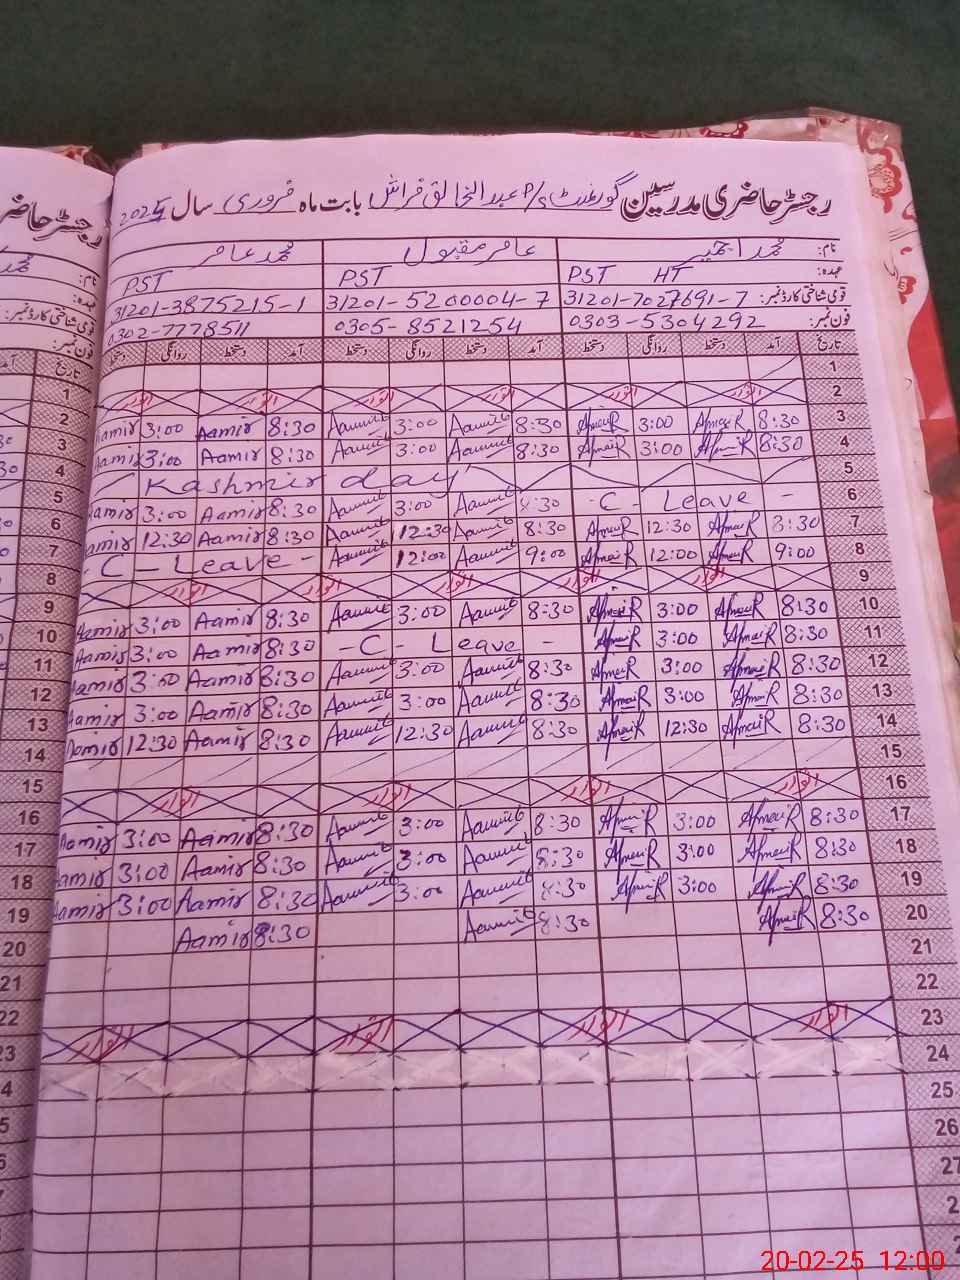 رجسٹر حاضری مدرسین گورنمنٹ P/S عبدالخالق فراش بابت ماہ فروری سال 2025
نام: محمد احمیر عامر مقبول محمد عامر
عہدہ: PST HT PST PST
قومی شناختی کارڈ نمبر: 31201-7027691-7 31201-5200004-7 31201-3875215-1
فون نمبر: 0303-5304292 0305-8521254 0302-7778511
تاریخ آمد دستخط روانگی دستخط آمد دستخط روانگی دستخط آمد دستخط روانگی دستخط
1
2 اتوار اتوار اتوار اتوار اتوار اتوار
3 8:30 3:00 8:30 3:00 8:30 Aamir 3:00 Aamir
4 8:30 3:00 8:30 3:00 8:30 Aamir 3:00 Aamir
5 Kashmir day
6 - C - Leave - 8:30 3:00 8:30 Aamir 3:00 Aamir
7 8:30 12:30 8:30 12:30 8:30 Aamir 12:30 Aamir
8 9:00 12:00 9:00 12:00 - C - Leave -
9 اتوار اتوار اتوار اتوار اتوار
10 8:30 3:00 8:30 3:00 8:30 Aamir 3:00 Aamir
11 8:30 3:00 - C - Leave - 8:30 Aamir 3:00 Aamir
12 8:30 3:00 8:30 3:00 8:30 Aamir 3:00 Aamir
13 8:30 3:00 8:30 3:00 8:30 Aamir 3:00 Aamir
14 8:30 12:30 8:30 12:30 8:30 Aamir 12:30 Aamir
15
16 اتوار اتوار اتوار اتوار
17 8:30 3:00 8:30 3:00 8:30 Aamir 3:00 Aamir
18 8:30 3:00 8:30 3:00 8:30 Aamir 3:00 Aamir
19 8:30 3:00 8:30 3:00 8:30 Aamir 3:00 Aamir
20 8:30 8:30 8:30 Aamir
21
22
23 اتوار اتوار اتوار اتوار
24
25
26
27
رجسٹر حاضری
نام:
عہدہ:
قومی شناختی کارڈ نمبر:
فون نمبر:
تاریخ
1
2
3
4
5
6
7
8
9
10
11
12
13
14
15
16
17
18
19
20
21
22
23
20-02-25 12:00